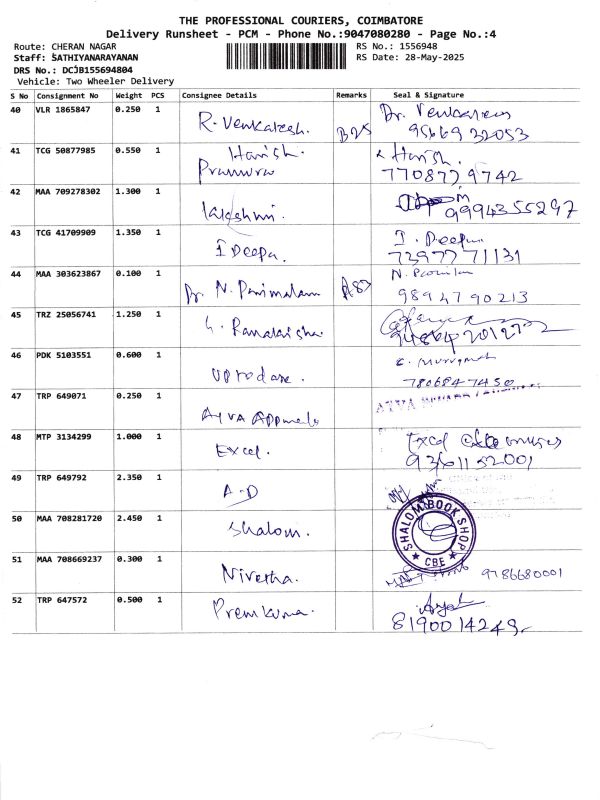 THE PROFESSIONAL COURIERS, COIMBATORE
Delivery Runsheet - PCM - Phone No.:9047080280 - Page No.:4
Route: CHERAN NAGAR
RS No.: 1556948
Staff: SATHIYANARAYANAN
RS Date: 28-May-2025
DRS No.: DCJB155694804
Vehicle: Two Wheeler Delivery
S No Consignment No Weight PCS Consignee Details Remarks Seal & Signature
40 VLR 1865847 0.250 1 R. Venkatesh. Dr. Venkatesh
9566932053
41 TCG 50877985 0.550 1 Harish. Harish.
7708729742
42 MAA 709278302 1.300 1 Lakshmi. 9994355297
43 TCG 41709909 1.350 1 I Deepa. I. Deepa
7397771131
44 MAA 303623867 0.100 1 Dr. N. Panimalam N.
9894790213
45 TRZ 25056741 1.250 1
46 PDK 5103551 0.600 1 uptodate. c. Murugesh
7806847450
47 TRP 649071 0.250 1 AYVA AYVA
48 MTP 3134299 1.000 1 Excel. Excel
9361152001
49 TRP 649792 2.350 1 A-D
50 MAA 708281720 2.450 1 Shalom. SHALOM BOOK SHOP
CBE
51 MAA 708669237 0.300 1 Nivetha. 9786680001
52 TRP 647572 0.500 1 Premkumar.
8190014249